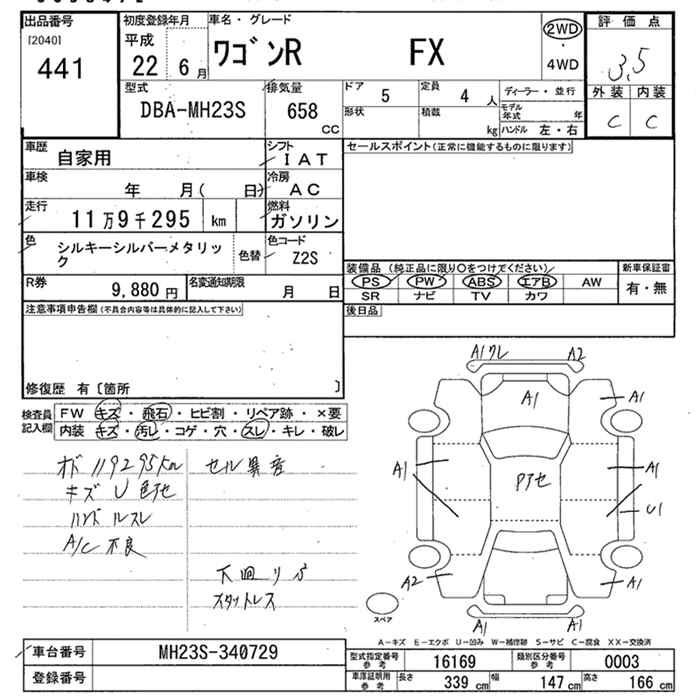 出品番号
[2040]
441
初度登録年月
平成
22 6 月
車名・グレード
ワゴンR FX
2WD
・
4WD
評価点
3.5
外装 内装
C C
型式
DBA-MH23S
排気量
658
CC
ドア
5
定員
4 人
形状
積載
kg
ディーラー・並行
モデル年式 年
ハンドル 左・右
車歴
自家用
シフト
IAT
セールスポイント(正常に機能するものに限ります)
車検
年 月( 日)
冷房
AC
走行
11万9千295 km
燃料
ガソリン
色
シルキーシルバーメタリック
色替
色コード
Z2S
R券
9,880 円
名変通知期限
月 日
装備品 (純正品に限り○をつけてください)
PS PW ABS エアB AW
SR ナビ TV カワ
新車保証書
有・無
後日品
注意事項申告欄(不具合内容等は具体的に記入して下さい)
修復歴 有〔箇所 〕
検査員記入欄
FW キズ・飛石・ヒビ割・リペア跡・×要
内装 キズ・汚レ・コゲ・穴・スレ・キレ・破レ
119295km
キズ U 色アセ
ハンドルスレ
A/C 不良
セル異音
下廻りサビ
スタットレス
A1ワレ
A2
A1
A1
A1
A1
U1
Pアセ
A2
A1
A1
A1
スペア
A-キズ E-エクボ U-凹み W-補修跡 S-サビ C-腐食 XX-交換済
車台番号
MH23S-340729
登録番号
型式指定番号
参考
16169
類別区分番号
参考
0003
車庫証明用
参考
長さ
339 cm
幅
147 cm
高さ
166 cm